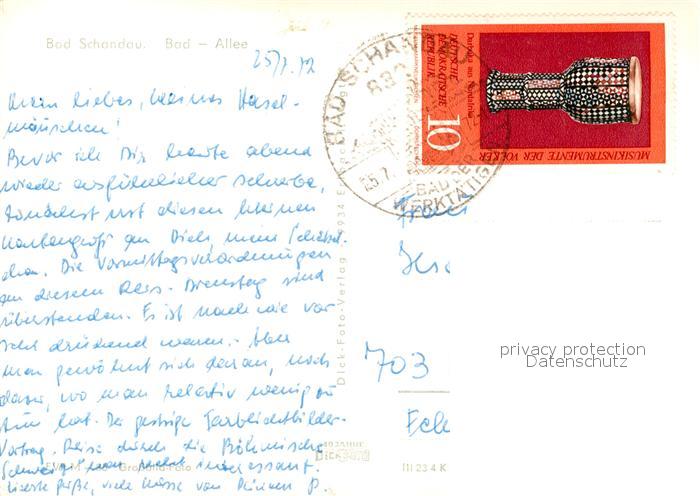 Bad Schandau. Bad – Allee
25/7.72
Mein liebes, kleines Hasel-
mäuschen!
Bevor ich Dir heute abend
wieder ausführlicher schreibe,
zunächst erst diesen kleinen
Kartengruß an Dich, mein Schätzel-
chen. Die Vormittagsverordnungen
an diesem Diens-Dienstag sind
überstanden. Es ist nach wie vor
sehr drückend warm. Aber
man gewöhnt sich daran, noch
dazu, wo man relativ wenig zu
tun hat. Der gestrige Farblichtbilder-
Vortrag "Reise durch die Böhmische
Schweiz" war recht interessant.
Liebste Grüße, viele Küsse von Deinem P.
BAD SCHANDAU
830
25.7.
BAD DER
WERKTÄTIGEN
Darbuka aus Nordafrika
DEUTSCHE
DEMOKRATISCHE
REPUBLIK
10
MUSIKINSTRUMENTE DER VÖLKER
Dick-Foto-Verlag
703
privacy protection
Datenschutz
40 JAHRE
Dick
III 23 4 K